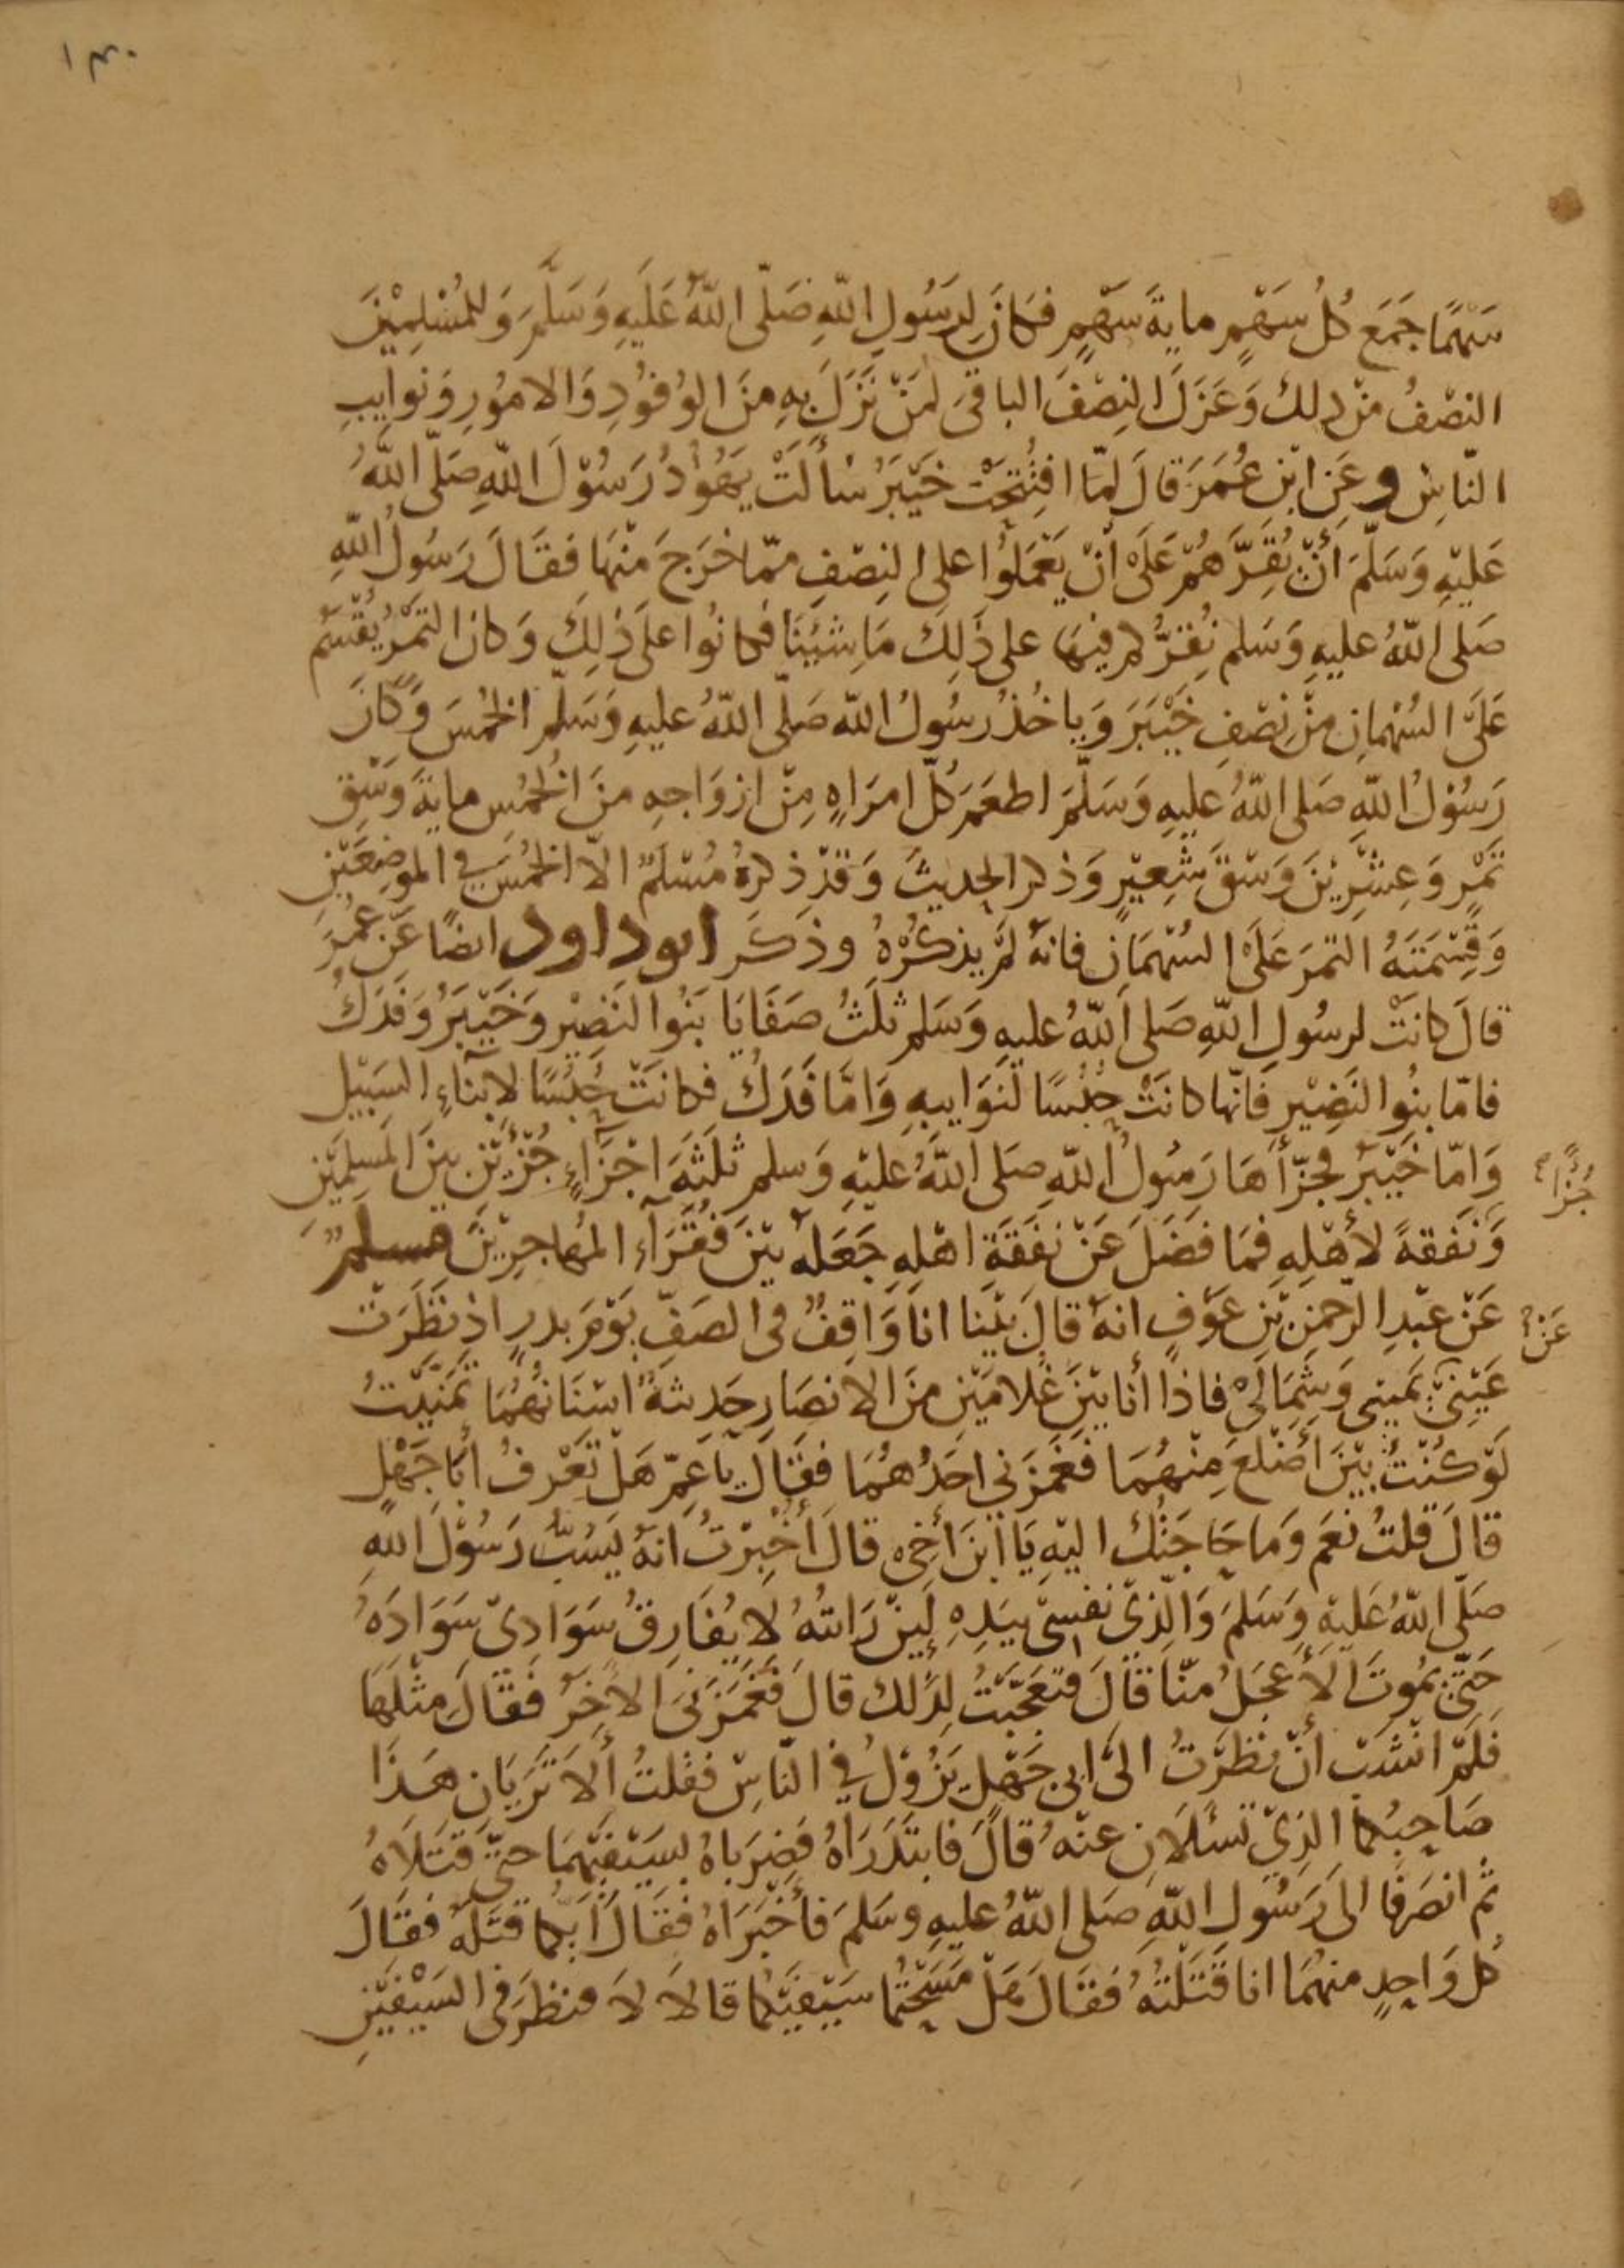 ١٣٠
سَهْمًا جَمَعَ كُلُ سَهْمٍ مايةَ سَهْمٍ فكَانَ لِرَسُولِ اللهِ صَلّى اللهُ عَلَيهِ وَسَلَّمَ وَللمُسْلِمِيْنَ
النصْفُ منْ ذلك وَعَزَلَ النِصْفَ الباقىَ لمَنْ نَزَلَ بهِ مِنَ الوُفوُدِ وَالامُورِ وَنَوايِبِ
النّاسِ وعَنِ ابْنِ عُمَرَ قالَ لمّا افتُتِحَتْ خَيْبَرُ سْألَتْ يَهُوْدُ رَسُوْلَ اللهِ صَلّى اللهُ
عَليْهِ وَسَلّمَ أنْ يُقِرَّهُمْ عَلَى أنْ يَعْمَلُوا على النِصْفِ ممّا خرَجَ منْهَا فقَالَ رَسُولُ اللهِ
صَلى اللهُ عليهِ وَسَلم نُقِرُّكم فيهَا على ذَلِكَ مَا شِيْنَا فكانُوا علَى ذلِكَ وَكانَ التمْرُ يُقْسَمُ
عَلَى السُهْمانِ منْ نِصْفِ خَيْبَرَ وَياخُذُ رسُولُ الله صَلّى اللهُ عليهِ وَسَلّمَ الخمُسَ وَكَانَ
رَسُوْلُ اللهِ صَلى اللهُ عليهِ وَسَلّمَ اطعَمَ كُلّ امرَاةٍ مِنْ ازوَاجِهِ منَ الخُمُسِ مايةَ وَسْقٍ
تَمْرٍ وَعِشْرِيْنَ وَسْقَ شَعِيْرٍ وَذكر الحديثَ وَقدْ ذكرهُ مُسْلمٌ الّا الخمُسَ فى الموضِعَيْنِ
وَقِسْمَتَهُ التمرَ عَلَى السُهْمَانِ فانهُ لمْ يذكُرْهُ وذكَرَ ابوداود ايضًا عَنْ عمُرَ
قالَ كانَتْ لرسُولِ اللهِ صَلى اللهُ عليهِ وَسَلم ثلَثُ صَفَايَا بَنُوا النَضِيْر وَخَيْبَرُ وَفَدَكُ
فامّا بنُوا النَضِيْر فَانّها كانَتْ حُبُسًا لنَوَايبهِ وَامَّا فَدَكُ فكانَتْ حُبُسًا لابناءِ السَبِيْلِ
وَامّا خَيْبَرُ فجَزّأهَا رَسُولُ اللهِ صَلى اللهُ عليْهِ وَسلم ثلَثَةَ اجْزَآءٍ جُزْءَيْنِ بينَ المسلِمَيْنِ
جُزْأً
وَنَفقةً لأهْلِهِ فمَا فضَلَ عَنْ نفَقَةِ اهْلِهِ جَعَلهُ بيْنَ فُقرَآءِ المُهاجرِيْنَ مسلمٌ
عَنْ عبْدِ الرّحمنِ بْنِ عوْفٍ انهُ قالَ بيْنا انا وَاقِفٌ فى الصَفِّ يوْمَ بدرٍ اذ نظَرَتْ
عَنْ
عَيْنِىْ يَمِينى وَشِمَالىْ فاذَا أنا بيْنَ غُلامَيْنِ منَ الانصَارِ حَدِيثَةٌ اسْنَانُهُمَا تمَنّيْتُ
لَوْ كُنْتُ بيْنَ أَضْلعَ مِنْهُمَا فغَمَزَنى احَدُهُمَا فقَالَ يَا عَمِّ هَلْ تَعْرِفُ أبَا جَهْلٍ
قالَ قلتُ نعَم وَما حَاجَتُكَ اليْهِ يَا ابْنَ أخِى قالَ أُخْبِرْتُ انهُ يَسُبُّ رَسُوْلَ اللهِ
صَلّى اللهُ عَليْهِ وَسَلمَ وَالّذىْ نفسِىْ بيَدِهِ لَيِنْ رَايتُهُ لَا يُفَارِقُ سَوَادىْ سَوَادَهُ
حَتّى يمُوتَ الأعجَلُ منّا قَالَ فتعَجّبْتُ لِذَلك قالَ فغَمَزَنىَ الاخَرُ فقَالَ مِثْلَهَا
فَلَمْ انْشَبْ أنْ نظَرْتُ الى ابى جَهْلٍ يَزُوْلُ فى النّاسِ فقلتُ ألَا تَرَيَانِ هَذَا
صَاحِبُكما الذىْ تَسئَلَانِ عنْهُ قالَ فابتَدَرَاهُ فضرَباهُ بسَيْفيْهمَا حتّى قتَلَاهُ
ثم انصَرَفا الى رَسُولِ اللهِ صَلى اللهُ عليهِ وسَلمَ فأخْبَرَاهُ فقَالَ أيّكما قتَلَهُ فقَالَ
كل وَاحِدٍ منهُمَا انا قَتَلتُهُ فقَالَ هَلْ مَسَحْتُما سَيْفيَكُما قالَا لَا فنظَرَ فى السَيْفيْنِ